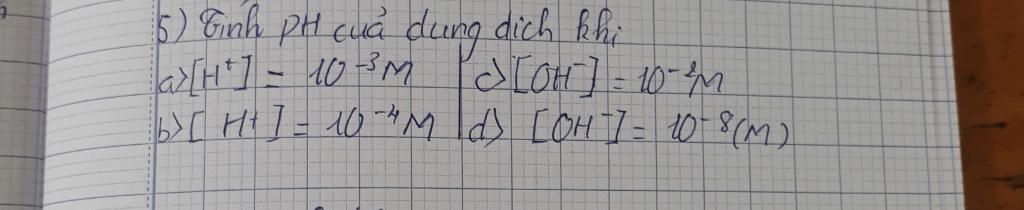 5) Tính pH của dung dịch khi
a) [H⁺] = 10⁻³M | c) [OH⁻] = 10⁻²M
b) [H+] = 10⁻⁴M | d) [OH⁻] = 10⁻⁸(M)